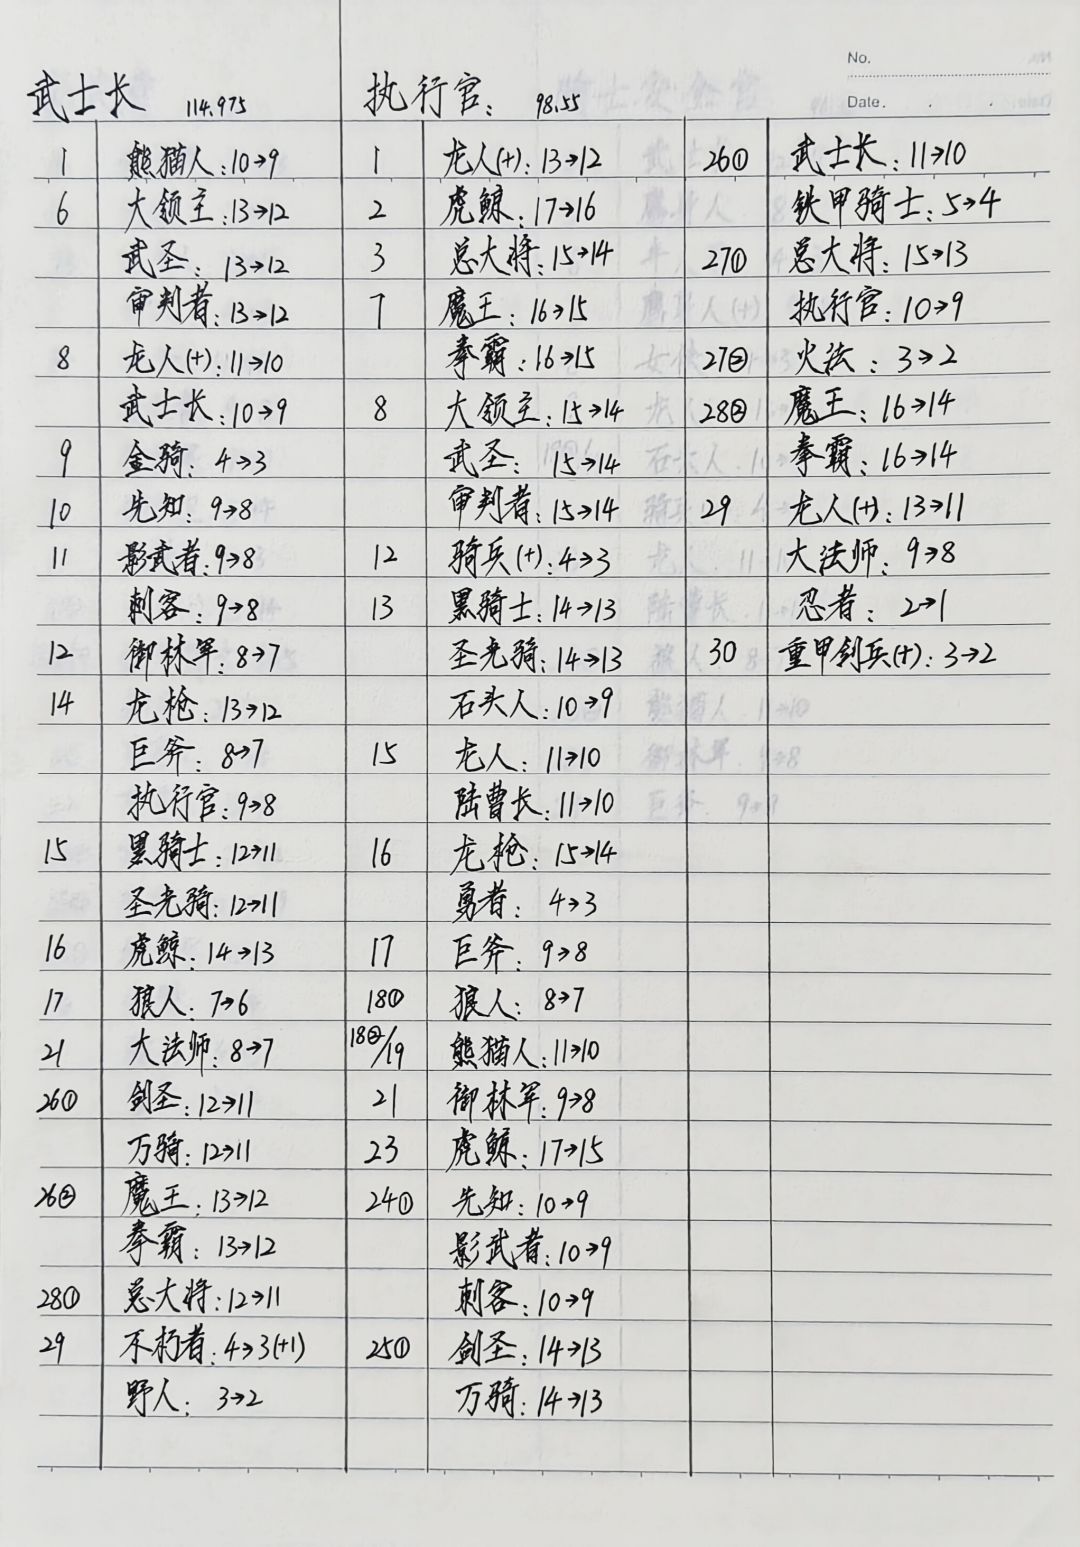 No.
Date.
武士长 114.975 执行官: 98.55
1 熊猫人:10→9 1 龙人(+):13→12 26① 武士长:11→10
6 大领主:13→12 2 虎鲸:17→16 铁甲骑士:5→4
武圣:13→12 3 总大将:15→14 27① 总大将:15→13
审判者:13→12 7 魔王:16→15 执行官:10→9
8 龙人(+):11→10 拳霸:16→15 27② 火法:3→2
武士长:10→9 8 大领主:15→14 28② 魔王:16→14
9 金骑:4→3 武圣:15→14 拳霸:16→14
10 先知:9→8 审判者:15→14 29 龙人(+):13→11
11 影武者:9→8 12 骑兵(+):4→3 大法师:9→8
刺客:9→8 13 黑骑士:14→13 忍者:2→1
12 御林军:8→7 圣光骑:14→13 30 重甲剑兵(+):3→2
14 龙枪:13→12 石头人:10→9
巨斧:8→7 15 龙人:11→10
执行官:9→8 陆曹长:11→10
15 黑骑士:12→11 16 龙枪:15→14
圣光骑:12→11 勇者:4→3
16 虎鲸:14→13 17 巨斧:9→8
17 狼人:7→6 18① 狼人:8→7
21 大法师:8→7 18②/19 熊猫人:11→10
26① 剑圣:12→11 21 御林军:9→8
万骑:12→11 23 虎鲸:17→15
26② 魔王:13→12 24① 先知:10→9
拳霸:13→12 影武者:10→9
28① 总大将:12→11 刺客:10→9
29 不朽者:4→3(+1) 25① 剑圣:14→13
野人:3→2 万骑:14→13